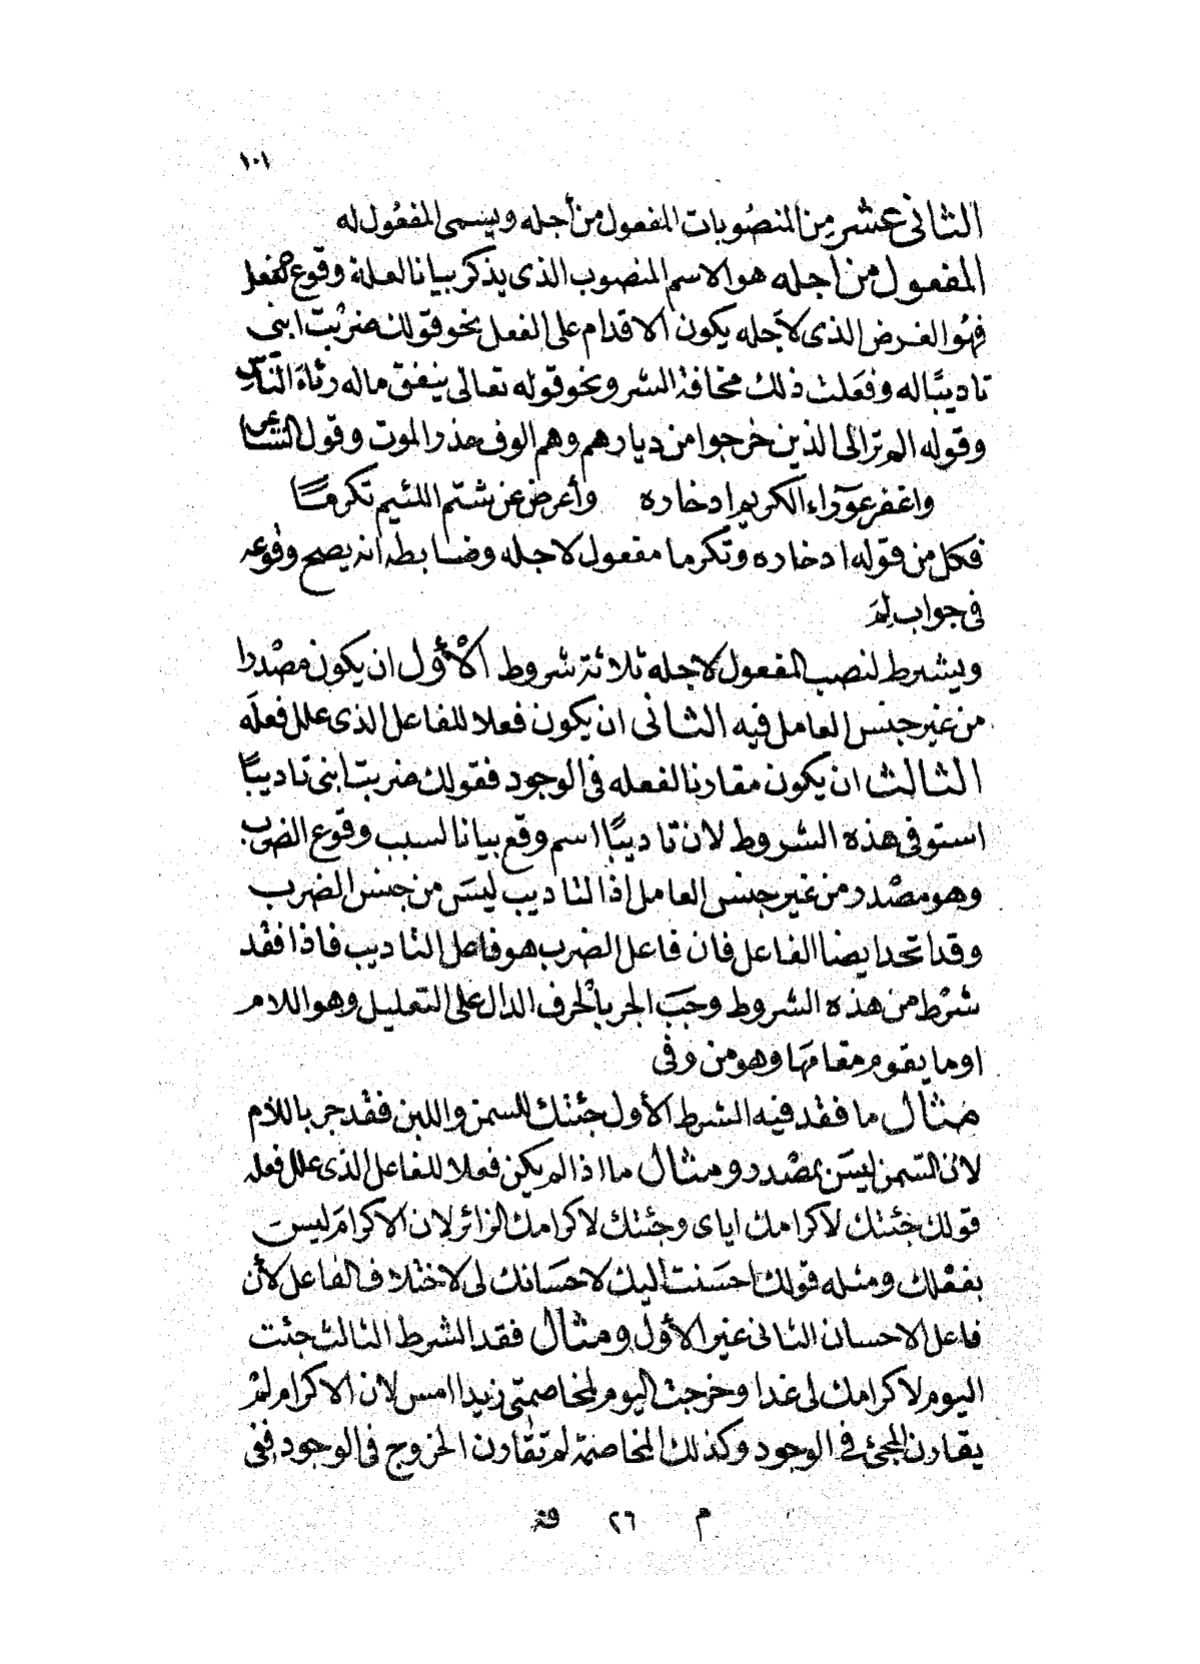 ١٠١
الثانى عشر من المنصُوبات المفعول من أجله ويسمى المفعُول له
المفعول من أجله هو الاسم المنصوب الذى يذكر بيانا لعلة وقوع الفعل
فهُو الغرض الذى لاَجله يكون الاقدام على الفعل نحو قولك ضربْت ابنى
تاديبًا له وفعَلت ذلك مخافة الشر ونحو قوله تعالى ينفق ماله رئاءَ النّاس
وقوله الم تر الى الذين خرجوا من ديارهم وهم الوف حذر الموت وقول الشاعر
واغفر عوَرٓاء الكريم ادخاره وأعرض عن شتم اللئيم تكرمًا
فكل من قوله ادخاره وتكرما مفعول لاجله وضابطه انه يصح وقوعه
فى جواب لِمَ
ويشترط لنصب المفعول لاجله ثلاثة شروط الْأَوُل ان يكون مصْدرا
من غير جنس العامل فيه الثانى ان يكون فعلا للفاعل الذى علل فعلَه
الثالث ان يكون مقارنا لفعله فى الوجود فقولك ضربت ابنى تاديبًا
استوفى هذه الشروط لان تاديبًا اسم وقع بيانا لسبب وقوع الضرب
وهو مصْدر من غير جنس العامل اذ التاديب ليسَ من جنس الضرب
وقد اتحد ايضا الفاعل فان فاعل الضرب هو فاعل التاديب فاذا فقد
شرْط من هذه الشروط وجَبَ الجر بالْحرف الدال على التعليل وهو اللام
او ما يقوم مقامَها وهو من وفى
مثال ما فقد فيه الشرط الأول جئتك للسمن واللبن فقد جر باللام
لان السّمن ليسَ بمصْدر ومثال ما اذا لم يكن فعلا للفاعل الذى علل فعله
قولك جئتك لاكرامك اياى وجئتك لاكرامك الزائر لان الاكرامَ ليس
بفعْلك ومثله قولك احسَنت اليك لاحسَانك لى لاختلاف الفاعل لأن
فاعل الاحسان الثانى غير الأول ومثال فقد الشرط الثالث جئت
اليوم لاكرامك لى غدا وخرجت اليوم لمخاصمتى زيدا امس لان الاكرام لمْ
يقارن المجئ فى الوجود وكذلك المخاصمة لم تقارن الخروج فى الوجود ففى
م ٢٦ قة